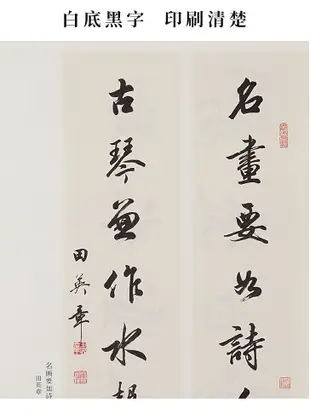 白底黑字 印刷清楚
名畫要如詩
古琴兼作水
田英章
名画要如诗
田英章